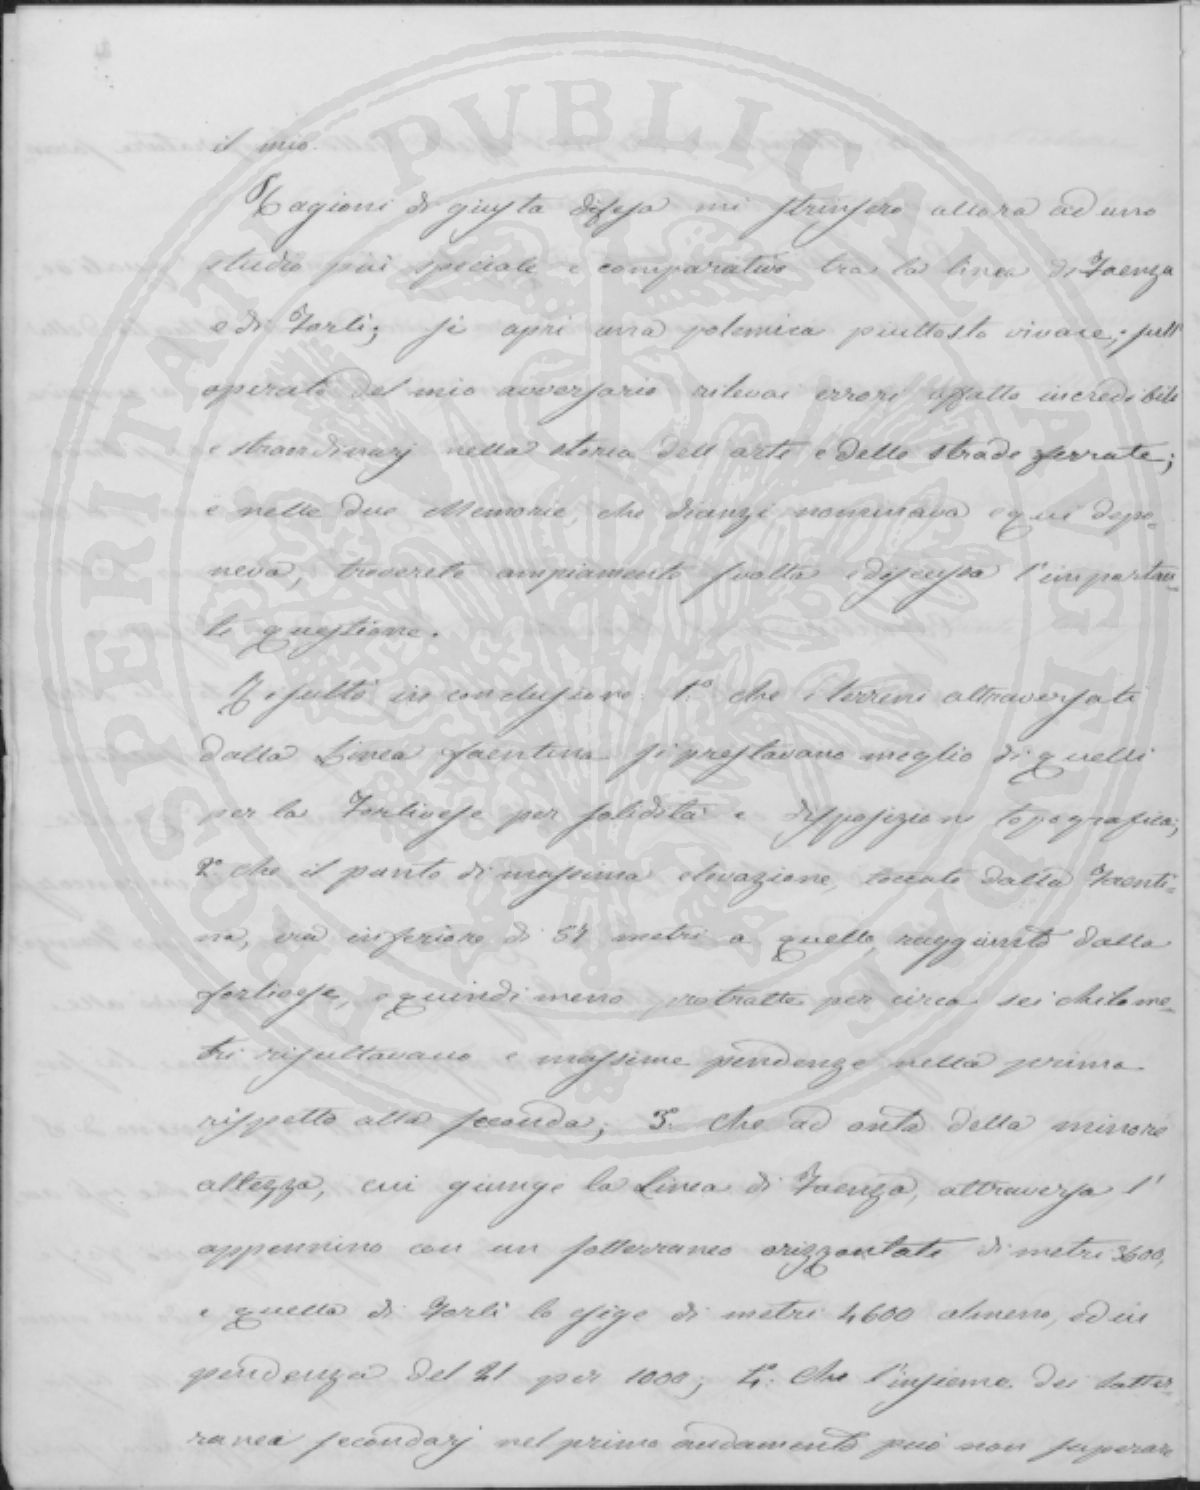 il mio.
Ragioni di giusta difesa mi strinsero allora ad uno
studio più speciale e comparativo tra la linea di Faenza
e di Forlì; si aprì una polemica piuttosto vivace; sull'
operato del mio avversario rilevai errori affatto incredibili
e straordinarj nella storia dell'arte e delle strade ferrate;
e nelle due Memorie, che dianzi nominava e qui depo-
neva, troverete ampiamente svolta e discussa l'importan-
te questione.
Risultò in conclusione: 1.° che i terreni attraversati
dalla Linea faentina si prestavano meglio di quelli
per la Forlivese per solidità e disposizione topografica;
2.° che il punto di massima elevazione, toccato dalla Faenti-
na, era inferiore di 51 metri a quello, raggiunto dalla
forlivese, e quindi meno protratte per circa sei chilome-
tri risultavano e massime pendenze nella prima
rispetto alla seconda; 3.° che ad onta della minore
altezza, cui giunge la Linea di Faenza, attraversa l'
appennino con un sotterraneo orizzontale di metri 3600,
e quella di Forlì lo esige di metri 4600 almeno, ed in
pendenza del 21 per 1000; 4.° che l'insieme dei sotter-
ranei secondarj nel primo andamento può non superare
PROSPERITATE PVBLICAE AVGENDAE